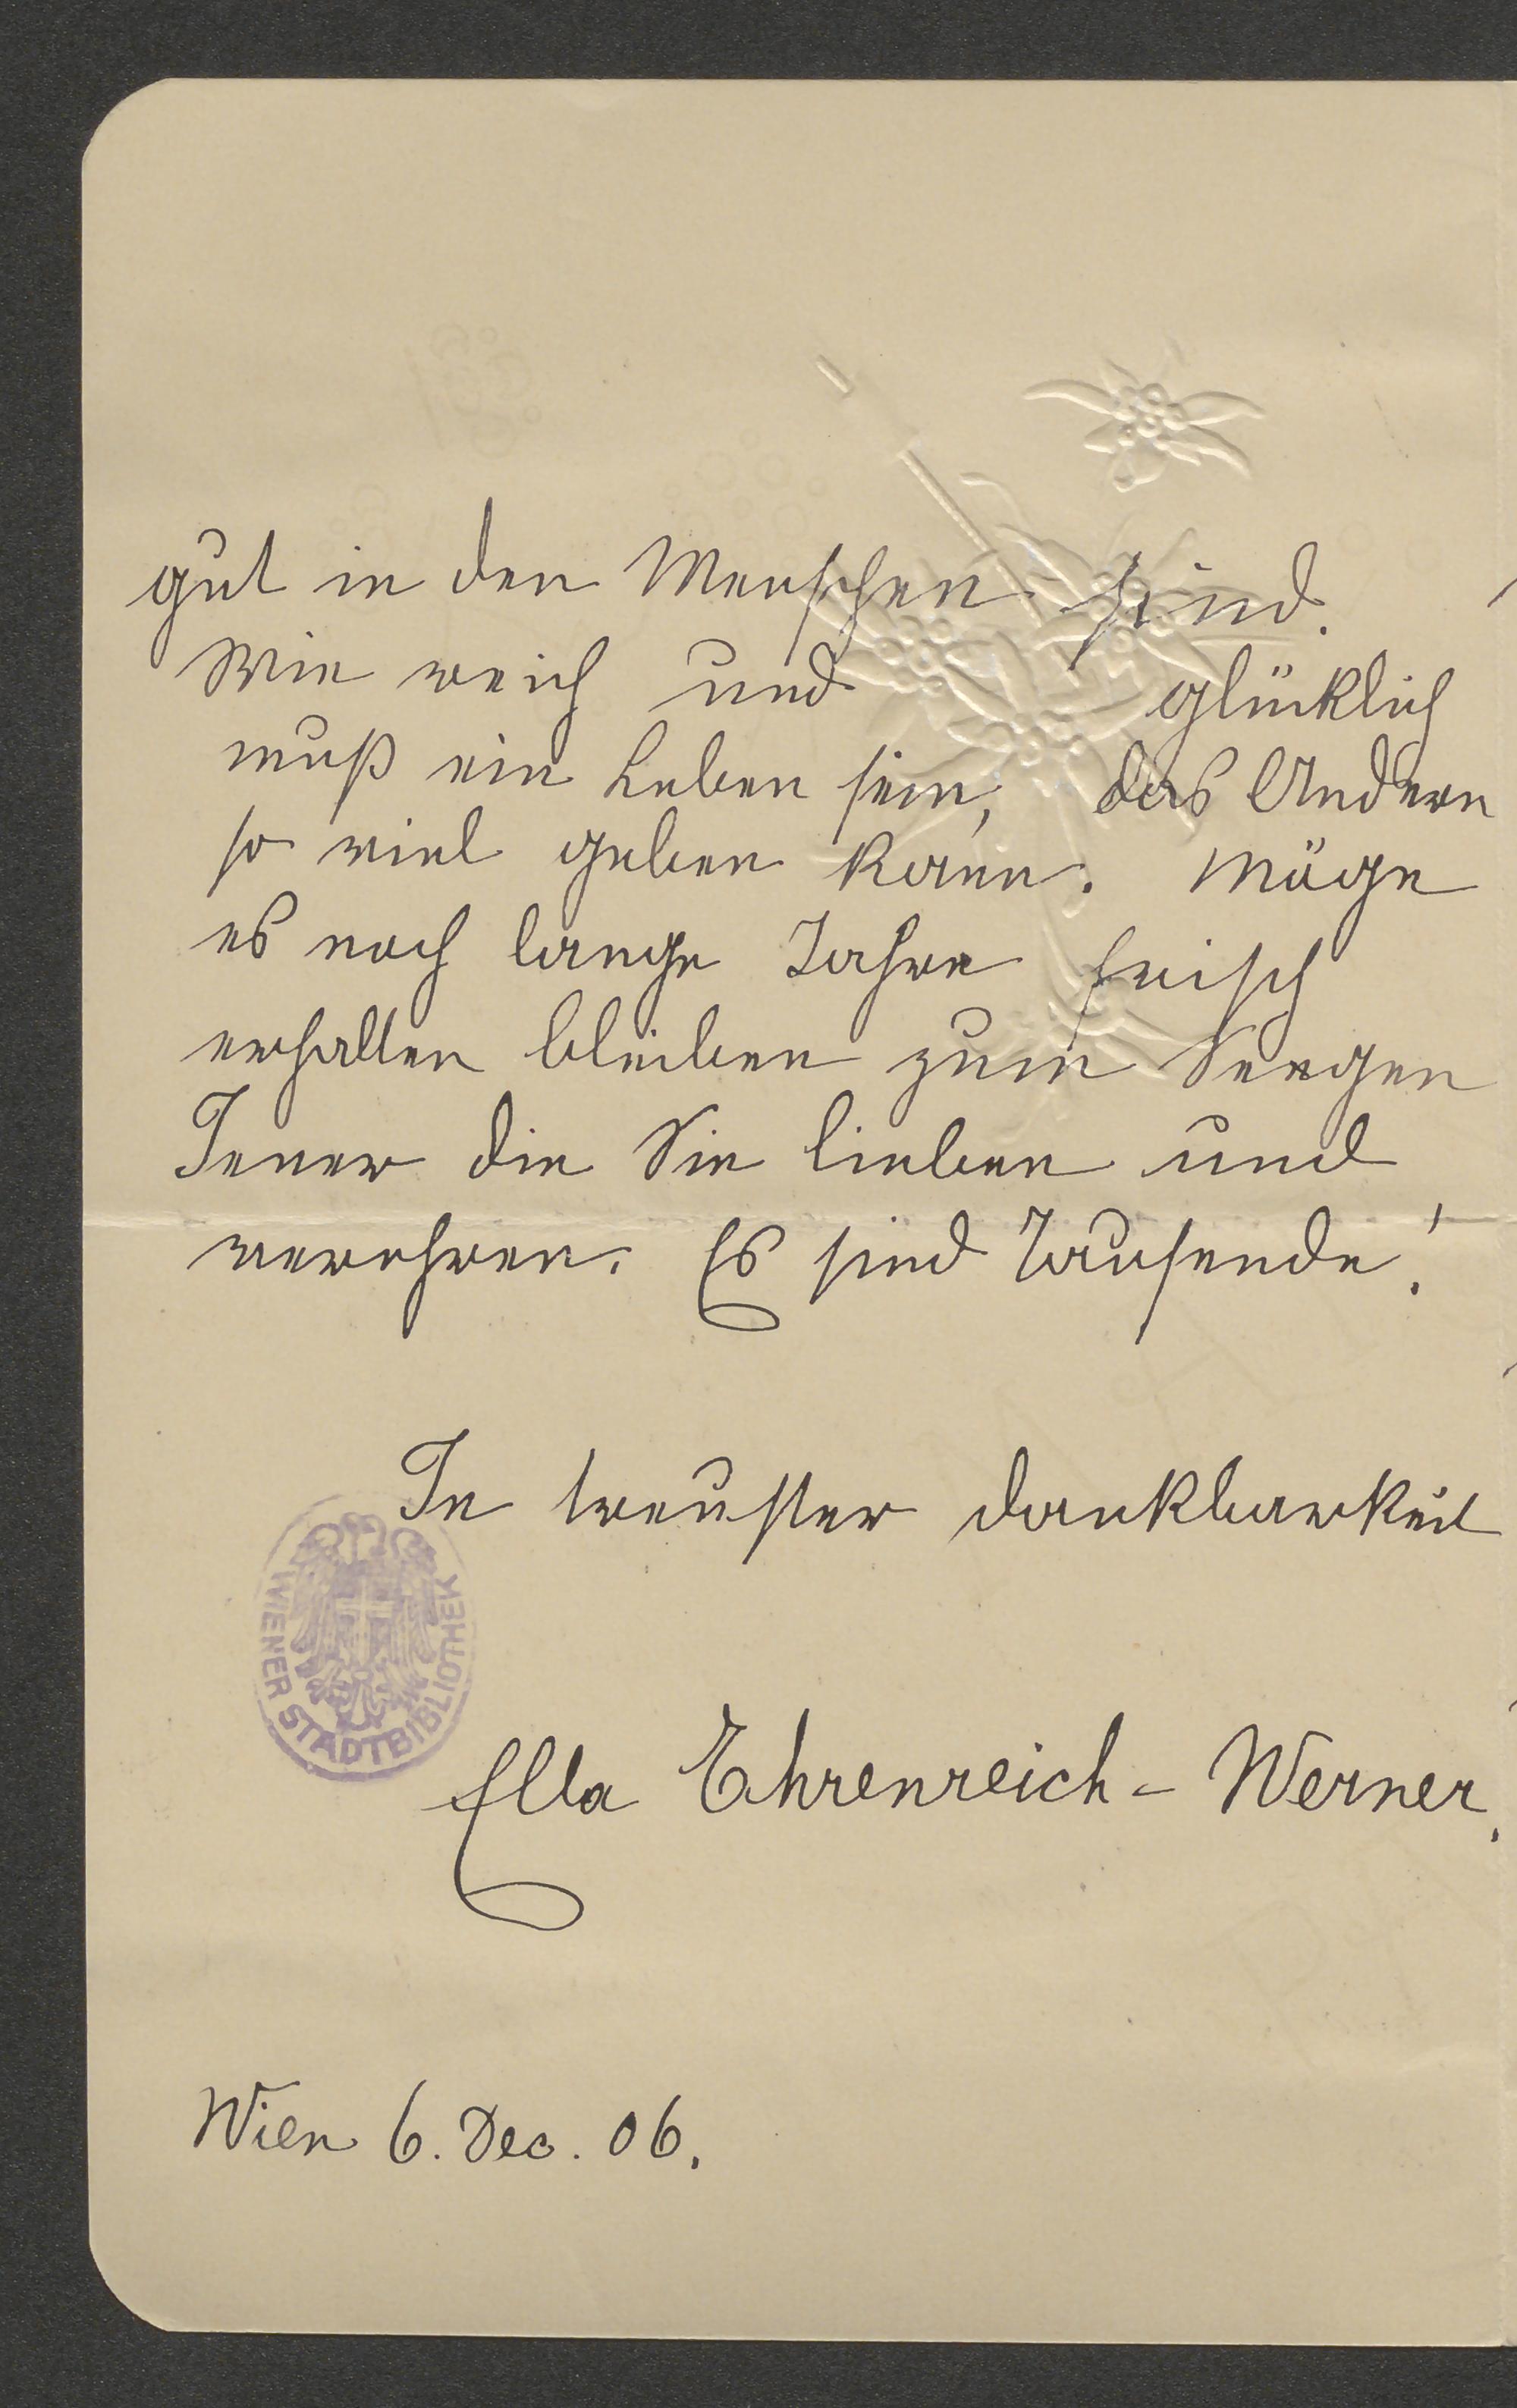 gut in den Menschen sind.
Wie reich und glücklich
muß ein Leben sein, das Andern
so viel geben kann. Möge
es noch lange Jahre frisch
erhalten bleiben zum Seegen
Jener die Sie lieben und
verehren. Es sind Tausende!
In treuster Dankbarkeit
WIENER STADTBIBLIOTHEK
Ella Ehrenreich-Werner.
Wien 6. Dec. 06.